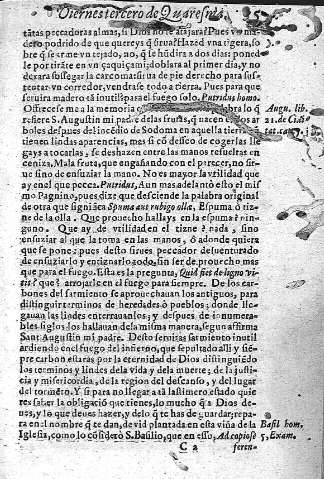 Viernes tercero de Quaresma.
tãtas peccadoras almas, si Dios no te atajara? Pues vn ma-
dero podrido de que quereys q̃ sirua? Hazed vna tijera, so-
bre q̃ se arme vn tejado, no, q̃ le hũdirà a dos dias: ponedle
le por tirãte en vn çaquiçami; doblara al primer dia, y no
dexara sossegar la carcoma: sirua de pie derecho para sus-
tentar vn corredor, vendrase todo a tierra. Pues para que
seruira madero tã inutil? para el fuego solo. Putridus homo.
Offrecese me a la memoria
refiere S. Augustin mi padre de las frutas, q̃ nacẽ
boles despues del incẽdio de Sodoma en aquella tierra
tienen lindas aparencias, mas si cõ desseo de cogerlas lle-
gays a tocarlas, se deshazen entre las manos resueltas en
ceniza. Mala fruta, que engañando con el parecer, no sir-
ue sino de ensuziar la mano. No es mayor la vtilidad que
ay en el que pecca. Putridus, Aun mas adelantò esto el mis
mo Pagnino, pues dize que desciende la palabra original
de otra que significa Spuma aut rubigo ollæ, Espuma ò tiz-
ne de la olla. Que prouecho hallays en la espuma? nin-
guno. Que ay de vtilidad en el tizne? nada, sino
ensuziar al que la toma en las manos, ò adonde quiera
que se pone: pues desto sirues peccador desuenturado
de ensuziarlo y entiznarlo todo, sin ser de prouecho mas
que para el fuego. Esta es la pregunta, Quid fiet de ligno vi-
tis? que? arrojarle en el fuego para siempre. De los car-
bones del sarmiento se aprouechauan los antiguos, para
distinguir terminos de heredades ò pueblos; donde lle-
gauan las lindes enterrauanlos; y despues de innumera-
bles siglos los hallauan de la misma manera, segun affirma
Sant Augustin mi padre. Desto seruiras sarmiento inutil
ardiendo en el fuego del infierno, que sepultado alli y siẽ-
pre carbon estaras por la eternidad de Dios distinguiẽdo
los terminos y lindes de la vida y de la muerte; de la justi-
cia y misericordia, de la region del descanso, y del lugar
del tormẽto. Y si para no llegar a tã lastimero estado quie
res saber la obligaciõ que tienes, lo mucho q̃ a Dios de-
ues, y lo que deues hazer, y de lo q̃ te has de guardar; repa-
ra en el nombre q̃ te dan, de vid plantada en esta viña de la
Iglesia, como lo cõsiderò S. Basilio, que en esso, Ad copiose
C a feren-
Augu. lib.
21. de Ciui
tat. ca. 7.
Basil hom.
5. Exam.